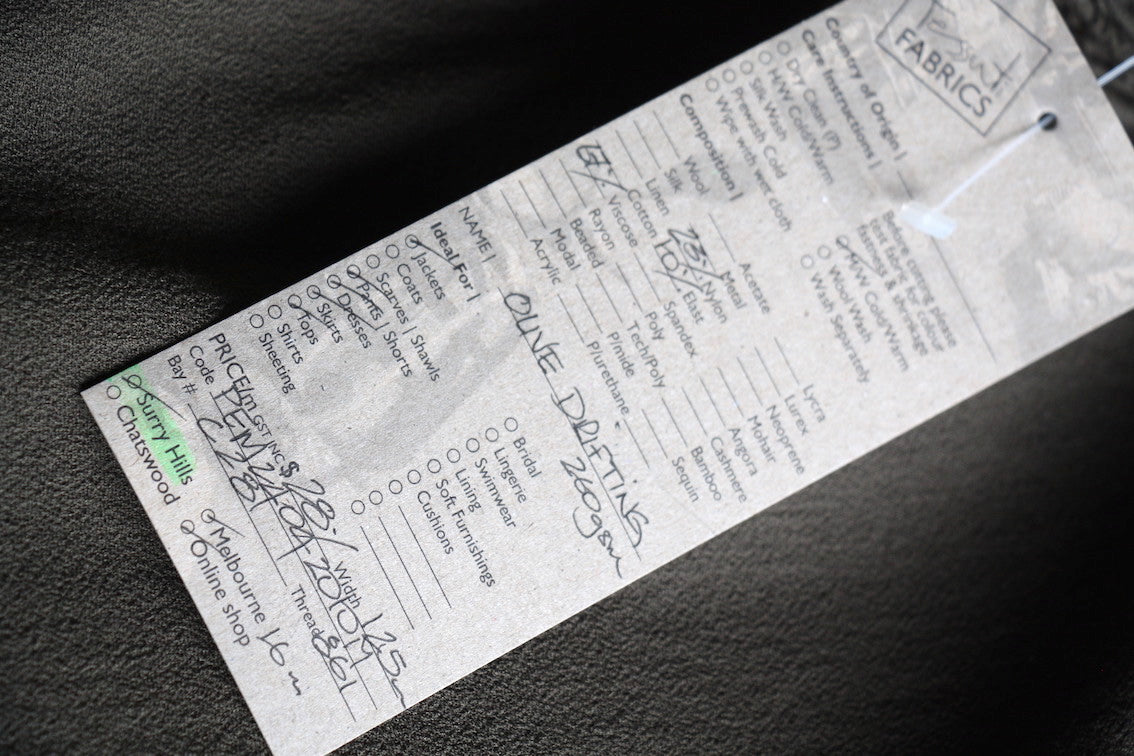 FABRICS
Country of Origin |
Care Instructions |
Dry Clean (P)
H/W Cold/Warm
Silk Wash
Prewash Cold
Wipe with wet cloth
Before cutting please
test fabric for colour
fastness & shrinkage
M/W Cold/Warm
Wool Wash
Wash Separately
Composition |
Wool
Silk
Linen
Cotton
67% Viscose
Rayon
Beaded
Modal
Acrylic
Acetate
Metal
23% Nylon
10% Elast
Spandex
Poly
Tech/Poly
P/imide
P/urethane
Lycra
Lurex
Neoprene
Mohair
Angora
Cashmere
Bamboo
Sequin
NAME | OLIVE DRIFTING
260gsm
Ideal For |
Jackets
Coats
Scarves | Shawls
Pants | Shorts
Dresses
Skirts
Tops
Shirts
Sheeting
Bridal
Lingerie
Swimwear
Lining
Soft Furnishings
Cushions
PRICE/m GST INC $ 28.-/ Width 125m
Code
Bay #
Thread 861
Surry Hills
Chatswood
Melbourne 16m
Online shop